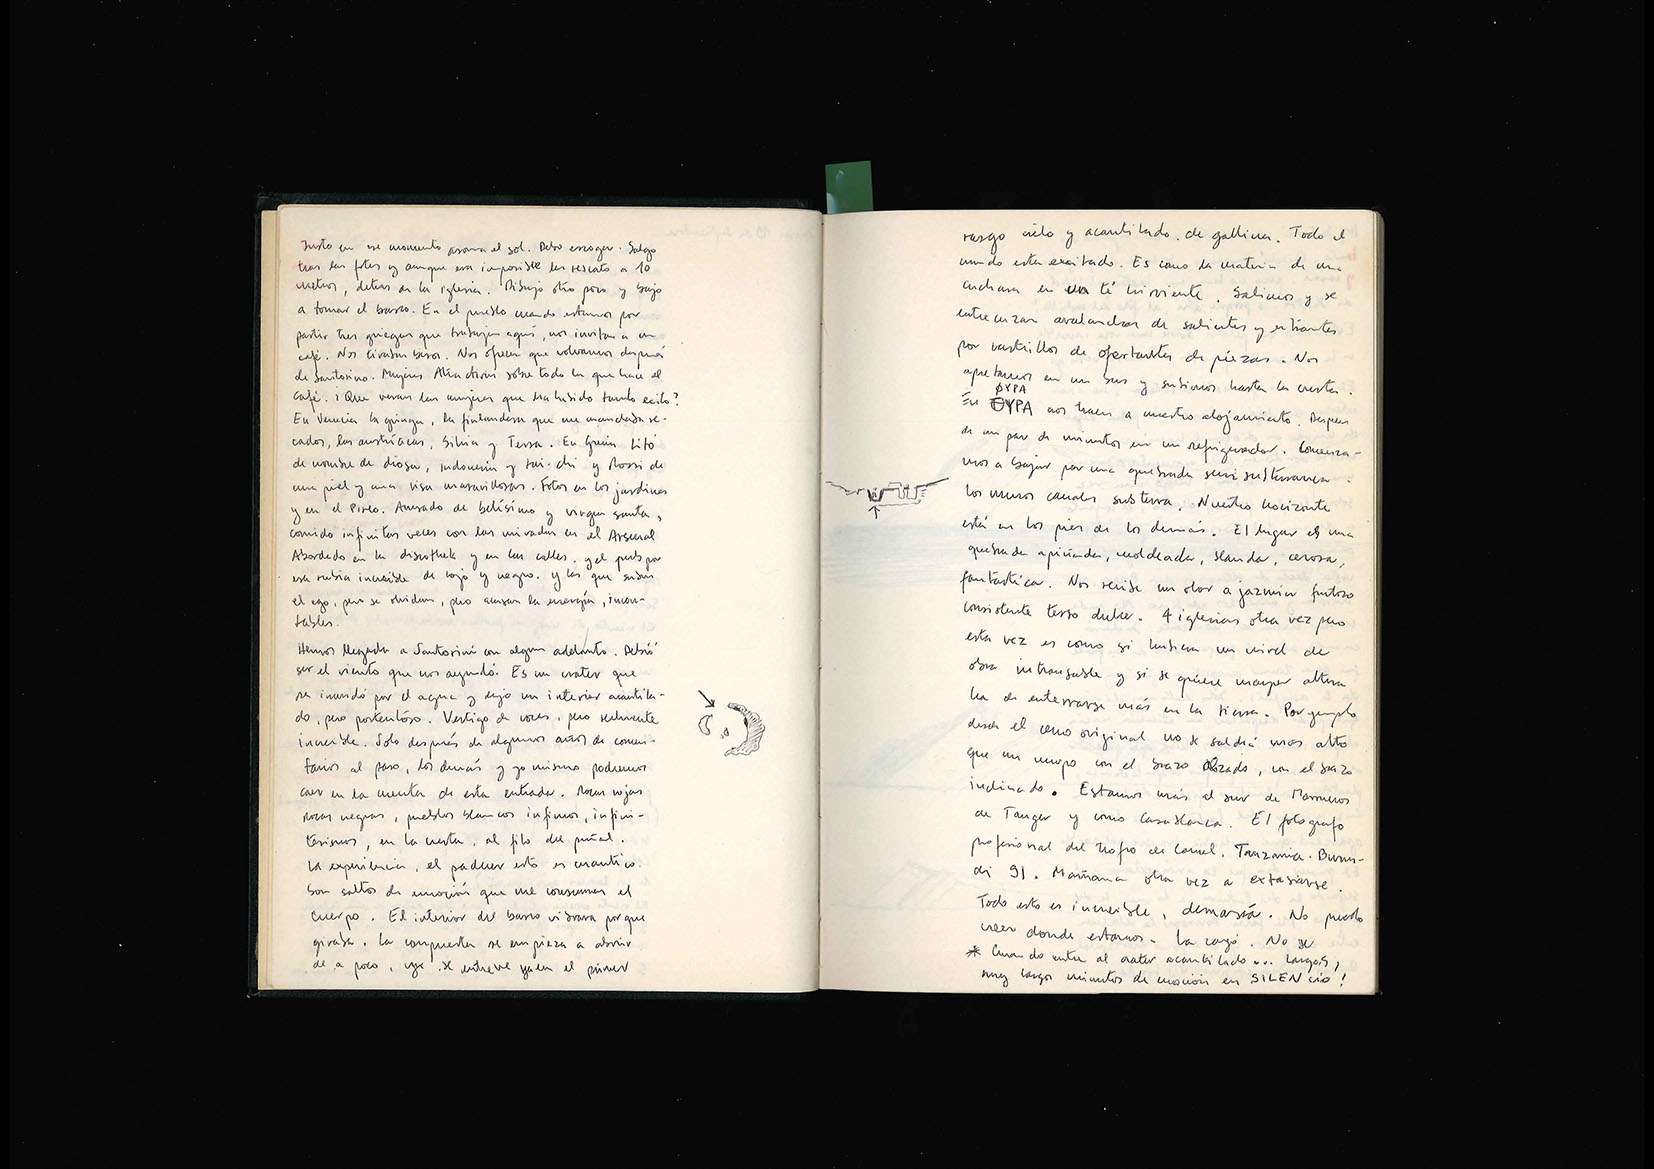 Justo en ese momento asoma el sol. Debo escoger. Salgo
tras las fotos y aunque era imposible las rescato a 10
metros, detras de la iglesia. Dibujo otro poco y bajo
a tomar el barco. En el pueblo cuando estamos por
partir tres griegas que trabajan aquí, nos invitan a un
café. Nos besos. Nos ofrecen que volvamos después
de Santorino. Mujeres sobre todo la que hace el
café. ¡Que veran las mujeres que ha habido tanto exito?
En Venecia la gringa, la finlandesa que me mandaba re-
cados, las austríacas, Silvia y Tessa. En Grecia Litó
de nombre de diosa, Indonesia y tai-chi y Rossi de
una piel y una risa maravillosas. Fotos en los jardines
y en el Pireo. Acusado de belísimo y virgen santa,
comido infinitas veces con las miradas en el Arsenal
Abordado en la discothek y en las calles. y el pub por
esa rubia increible de rojo y negro. y las que suben
el ego, pero se olvidan, pero acusan la energía, incon-
tables.
Hemos llegado a Santorini con algun adelanto. Debió
ser el viento que nos ayudó. Es un crater que
se inundó por el agua y dejó un interior acantila-
do, pero portentoso. Vertigo de voces, pero realmente
increible. Solo después de algunos años de comen-
tarios al paso, los demás y yo mismo podremos
caer en la cuenta de esta entrada. Rocas rojas
rocas negras, pueblos blancos infimos, infini-
tesimos, en la cresta, al filo del puñal.
La experiencia, el padecer esto es cuantico.
Son saltos de emoción que me consumen el
cuerpo. El interior del barco vibraba porque
giraba. La compuerta se empieza a abrir
de a poco, y se entreve ya en el primer
rasgo cielo y acantilado. de gallina. Todo el
mundo esta excitado. Es como la materia de una
cuchara en un té hirviente. Salimos y se
entrecruzan avalanchas de salientes y entrantes
por vastillos de ofertantes de piezas. Nos
apretamos en un bus y subimos hasta la cresta.
ΘΥΡΑ
En ΘΥΡΑ nos traen a nuestro alojamiento. Despues
de un par de minutos en un refrigerador. Comenza-
mos a bajar por una quebrada semisubterranea.
los muros canales subterra. Nuestro horizonte
está en los pies de los demás. El lugar es una
quebrada apiñada, moldeada, blanda, cerosa,
fantastica. Nos recibe un olor a jazmin frutoso
consistente terso dulce. 4 iglesias otra vez pero
esta vez es como si hubiera un nivel de
obra intransable y si se quiere mayor altura
ha de enterrarse más en la tierra. Por ejemplo
desde el cerro original no se saldrá mas alto
que un cuerpo con el brazo alzado, con el brazo
inclinado. Estamos más al sur de Marruecos
de Tanger y como Casablanca. El fotografo
profesional del trofeo de Camel, Tanzania. Burun-
di 91. Mañana otra vez a extasiarse.
Todo esto es increible, demasiá. No puedo
creer donde estamos. La cagó. No se
* Cuando entre al crater acantilado... largos,
muy largos minutos de emoción en SILENcio!